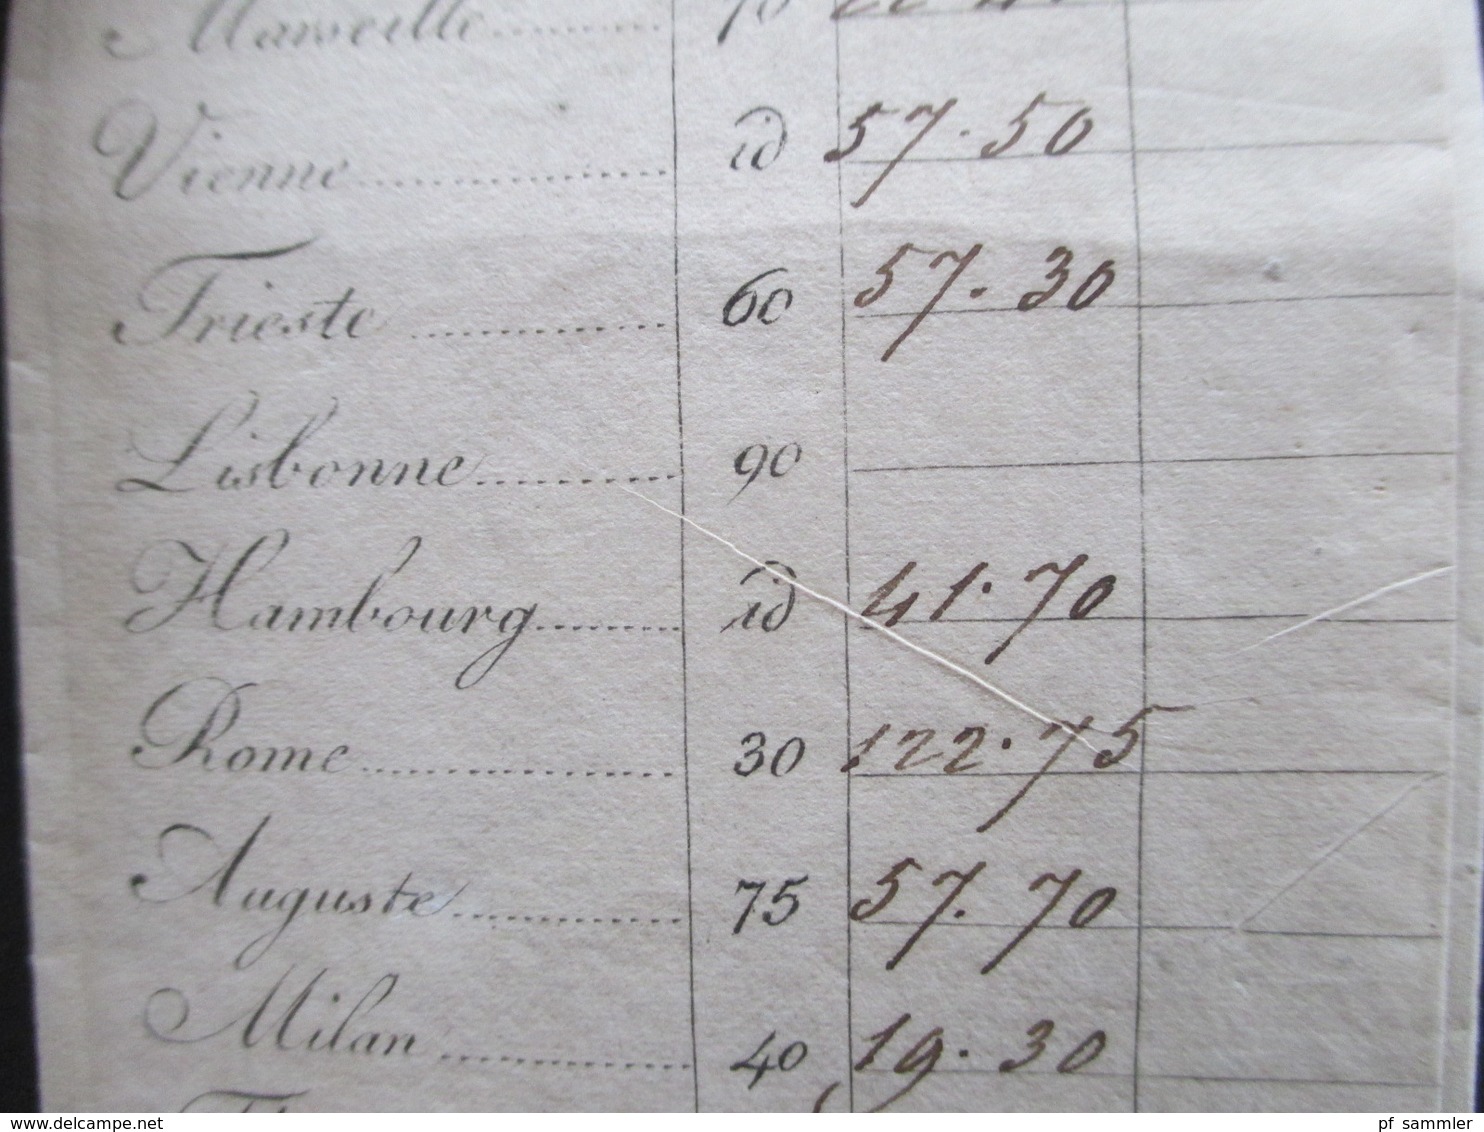 Marseille 70
Vienne id 57.50
Trieste 60 57.30
Lisbonne 90
Hambourg id 41.70
Rome 30 122.75
Auguste 75 57.70
Milan 40 19.30
delcampe.net
pf_sammler